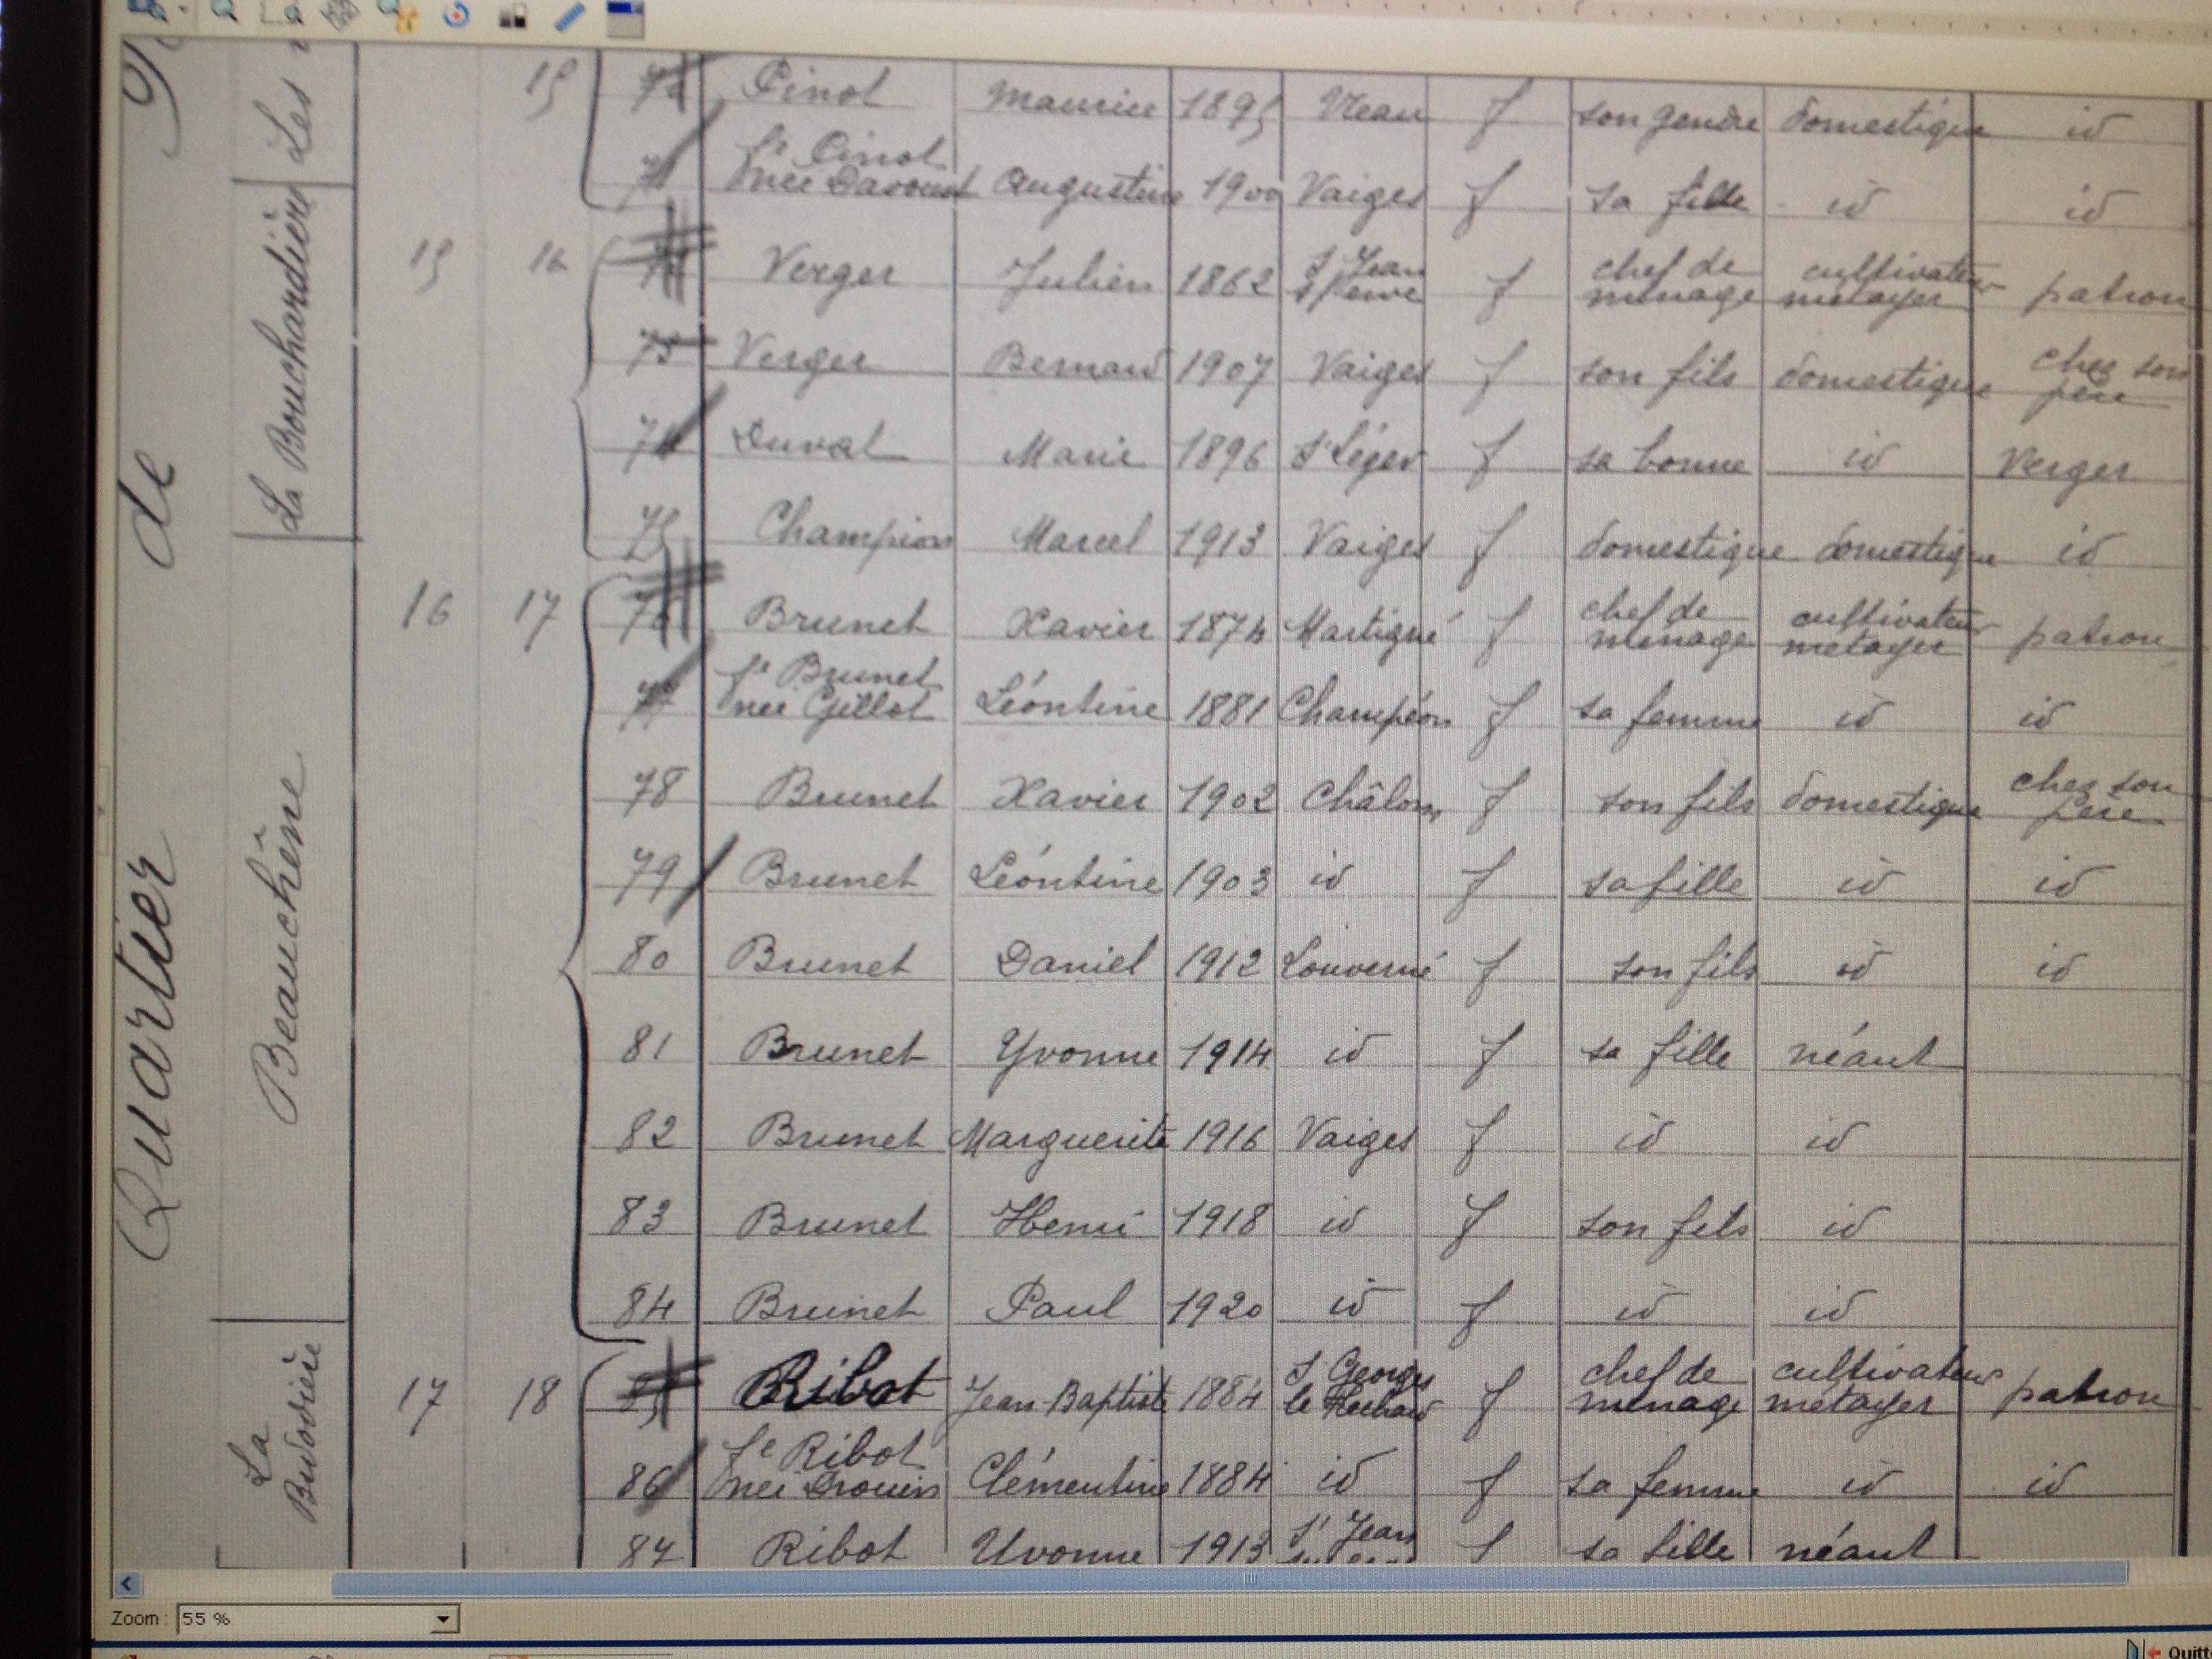 Quartier de
Les
15 Pinot Maurice 1895 f son gendre domestique id
71 fe Pinot
née Davoust Augustine 1900 Vaiges f sa fille id id
La Bouchardière
15 16 Verger Julien 1862 St Jean
s/ Erve f chef de
ménage cultivateur
métayer patron
73 Verger Bernard 1907 Vaiges f son fils domestique chez son
père
74 Duval Marie 1896 St Léger f sa bonne id Verger
75 Champion Marcel 1913 Vaiges f domestique domestique id
Beauchêne
16 17 76 Brunet Xavier 1874 Martigné f chef de
ménage cultivateur
métayer patron
77 fe Brunet
née Gillot Léontine 1881 Champéon f sa femme id id
78 Brunet Xavier 1902 Châlons f son fils domestique chez son
père
79 Brunet Léontine 1903 id f sa fille id id
80 Brunet Daniel 1912 Louverné f son fils id id
81 Brunet Yvonne 1914 id f sa fille néant
82 Brunet Marguerite 1916 Vaiges f id id
83 Brunet Henri 1918 id f son fils id
84 Brunet Paul 1920 id f id id
La
Budorière
17 18 85 Ribot Jean-Baptiste 1884 St Georges
le Fléchard f chef de
ménage cultivateur
métayer patron
86 fe Ribot
née Drouin Clémentine 1884 id f sa femme id id
87 Ribot Yvonne 1913 St Jean f sa fille néant
Zoom : 55 %
Quitt